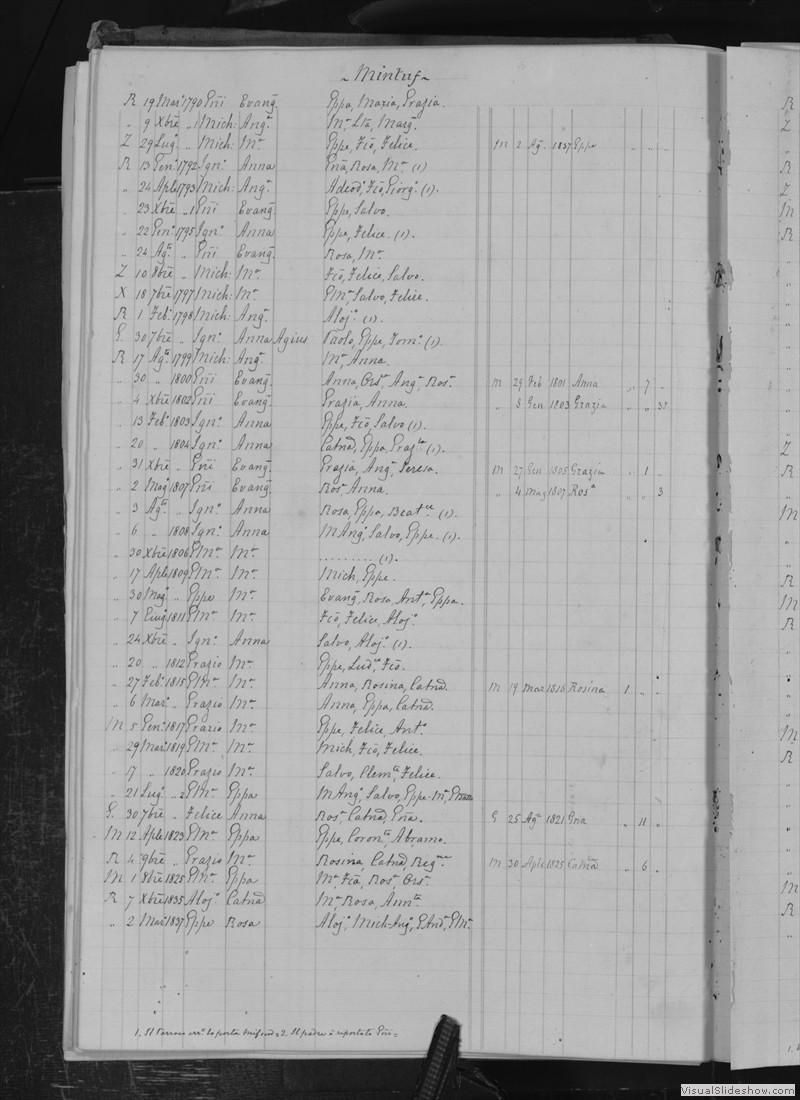 Mintuf
R 19 Mar. 1790 Gñi Evang. Eppa, Maria, Grazia.
„ 9 Xbrē „ 1 Mich: Ang. Mª Lta, Marg.
Z 29 Lug. „ Mich: Mª Eppe, Fcō, Felice. M 2 Ag. 1837 Eppe „ „ „
R 13 Gen. 1792 Ign. Anna Gnā, Rosa, Mª (1)
„ 24 Aple 1793 Mich: Ang. Adeod. Fcō, Giorg. (1).
„ 23 Xbrē „ 1 Gñi Evang. Eppe, Salvo.
„ 22 Gen. 1795 Ign. Anna Eppe, Felice (1).
„ 24 Ag. „ Gñi Evang. Rosa, Mª
Z 10 8brē „ Mich: Mª Fcō, Felice, Salvo.
X 18 7brē 1797 Mich: Mª GMª Salvo, Felice.
R 1 Feb. 1798 Mich: Ang. Aloj. (1).
G. 30 7brē „ Ign. Anna Agius Paolo, Eppe, Tom. (1).
R 17 Ag. 1799 Mich: Ang. Mª Anna.
„ 30 „ 1800 Gñi Evang. Anna, Ors. Ang. Ros. M 29 Feb 1801 Anna „ 7 „
„ 4 Xbrē 1802 Gñi Evang. Grazia, Anna. „ 8 Gen 1803 Grazia „ „ 35
„ 13 Feb. 1803 Ign. Anna Eppe, Fcō, Salvo (1).
„ 20 „ 1804 Ign. Anna Catnā, Eppa, Graz. (1).
„ 31 Xbrē „ Gñi Evang. Grazia, Ang. Teresa. M 27 Gen 1805 Grazia „ 1 „
„ 2 Mag. 1807 Gñi Evang. Ros. Anna. „ 4 Mag 1807 Rosª „ „ 3
„ 3 Ag. „ Ign. Anna Rosa, Eppa, Beat. (1).
„ 6 „ 1808 Ign. Anna MAng. Salvo, Eppe (1).
„ 30 Xbrē 1806 GMª Mª .......... (1).
„ 17 Aple 1809 GMª Mª Mich, Eppe.
„ 30 Mag. „ Eppe Mª Evang. Rosa, Antª Eppa.
„ 7 Giug. 1811 GMª Mª Fcō, Felice, Aloj.
„ 24 Xbrē „ Ign. Anna Salvo, Aloj. (1).
„ 20 „ 1812 Grazio Mª Eppe, Lud. Fcō.
„ 27 Feb. 1815 GMª Mª Anna, Rosina, Catnā. M 19 Mar 1816 Rosina 1 „ „
„ 6 Mar. „ Grazio Mª Anna, Eppa, Catnā.
M 5 Gen. 1817 Grazio Mª Eppe, Felice, Ant.
„ 29 Mar. 1819 GMª Mª Mich, Fcō, Felice.
„ 17 „ 1820 Grazio Mª Salvo, Clem. Felice.
„ 21 Lug. „ 2 GMª Eppa MAng. Salvo, Eppe-Mª
G. 30 7brē „ Felice Anna Ros. Catnā, Gna. G 25 Ag. 1821 Gna „ 11 „
M 12 Aple 1823 GMª Eppa Eppe, Coron. Abramo.
R 4 9brē „ Grazio Mª Rosina, Catnā, Reg. M 30 Aple 1825 Catnā „ 6 „
M 1 8brē 1825 GMª Eppa Mª Fcā, Ros. Ors.
R 7 Xbrē 1835 Aloj. Catnā Mª Rosa, Ann.
„ 2 Mar. 1837 Eppe Rosa Aloj. Mich-Ang. GAnd. GMª
1. Il Parroco err. lo porta 2. Il padre è riportato Gñi =
VisualSlideshow.com